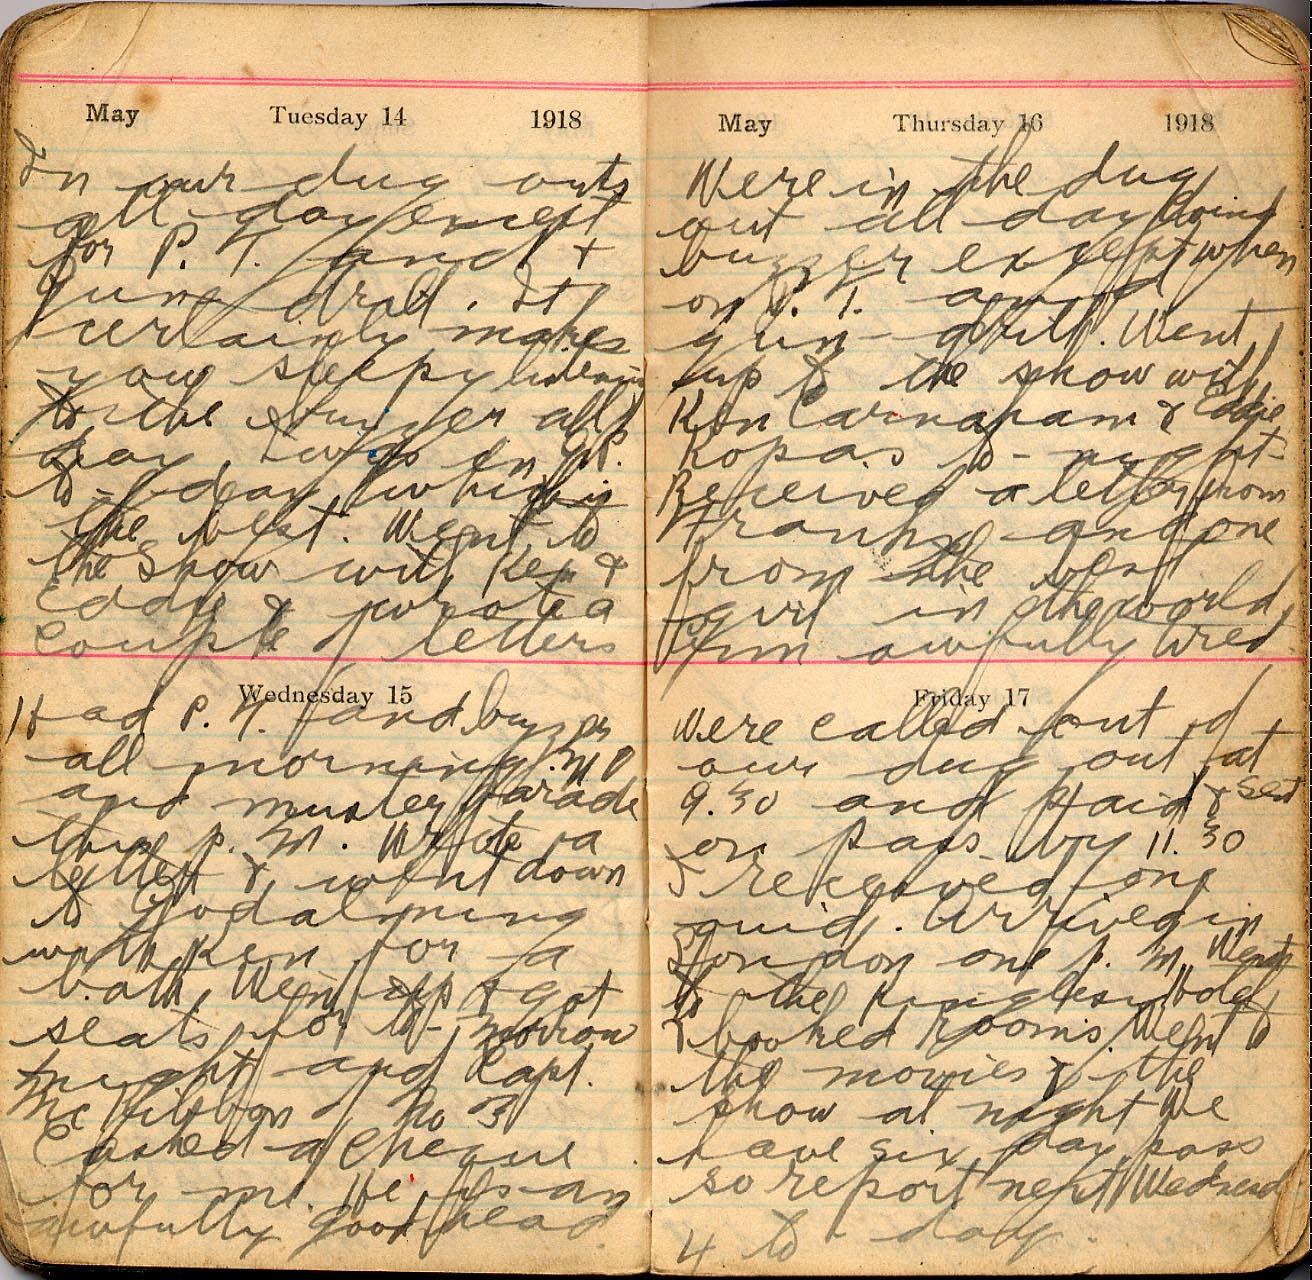 May Tuesday 14 1918
In our dug outs
all day except
for P. T. and
gun drill. It
certainly makes
you sleepy listening
to the buzzer all
day. I was on
to-day which is
the best. Went to
the show with Ken &
Eddie & wrote a
couple of letters
Wednesday 15
Had P. T. and buzzer
all morning.
and muster parade
this p. m. Wrote a
letter & went down
to Godalming
with Ken for a
bath. Went up & got
seats for to-morrow
night and Capt.
of No 3
cashed a cheque
for me. He is an
awfully good head.
May Thursday 16 1918
Were in the dug
out all day doing
buzzer except when
on P. T. and
gun-drill. Went
up to the show with
Ken Carnaham & Eddie
Kopas to-night
Received a letter from
Frank and one
from the best
girl in the world,
I'm awfully tired.
Friday 17
Were called out of
our dug out at
9.30 and paid & sent
on pass by 11.30
I received one
quid. Arrived in
London one p. m. Went
to the Hotel
& booked rooms. Went to
the movies & the
show at night We
have six day pass
so report next Wednesd
4 to-day.